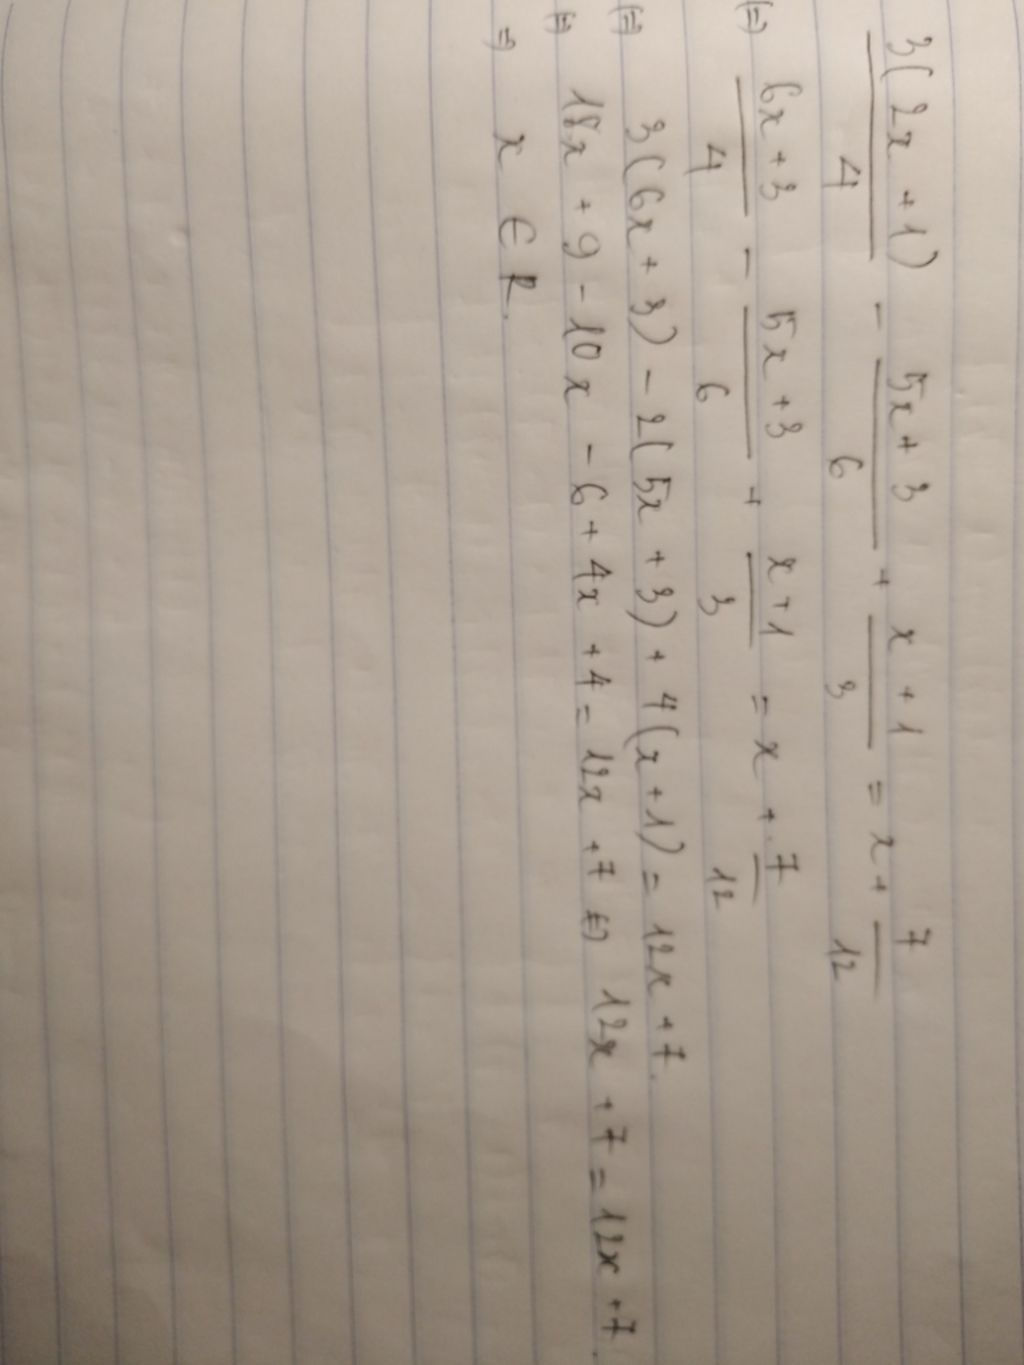 3(2x + 1)/4 - 5x + 3/6 + x + 1/3 = x + 7/12
(=) 6x + 3/4 - 5x + 3/6 + x + 1/3 = x + 7/12
(=) 3(6x + 3) - 2(5x + 3) + 4(x + 1) = 12x + 7.
(=) 18x + 9 - 10x - 6 + 4x + 4 = 12x + 7 (=) 12x + 7 = 12x + 7.
=) x ∈ R.